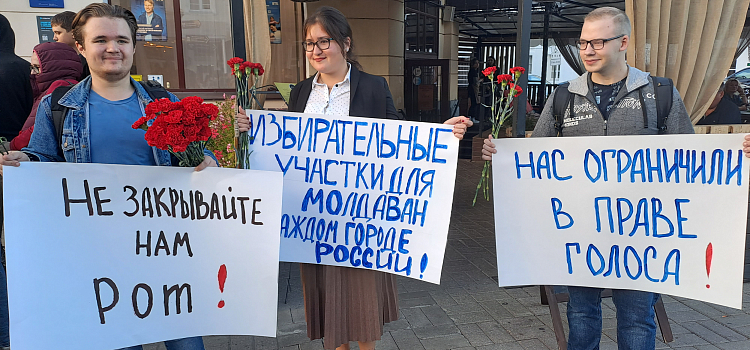 НЕ ЗАКРЫВАЙТЕ
НАМ
РОТ !
ИЗБИРАТЕЛЬНЫЕ
УЧАСТКИ ДЛЯ
МОЛДАВАН
АЖДОМ ГОРОДЕ
РОССИИ !
НАС ОГРАНИЧИЛИ
В ПРАВЕ
ГОЛОСА !